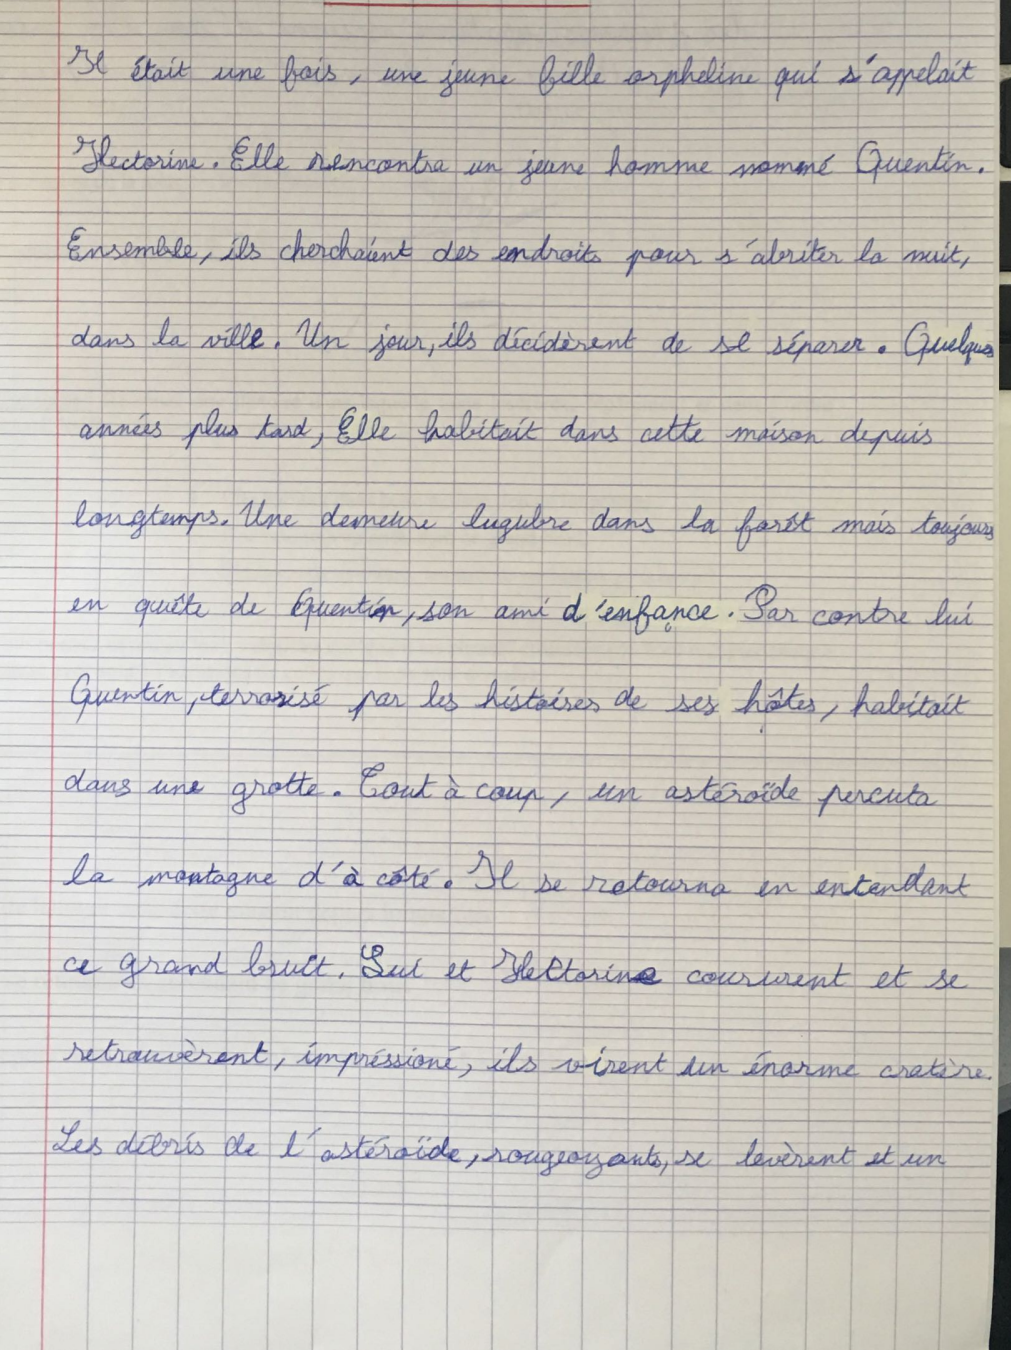 Il était une fois, une jeune fille orpheline qui s'appelait
Hectorine. Elle rencontra un jeune homme nommé Quentin.
Ensemble, ils cherchaient des endroits pour s'abriter la nuit,
dans la ville. Un jour, ils décidèrent de se séparer. Quelques
années plus tard, Elle habitait dans cette maison depuis
longtemps. Une demeure lugubre dans la forêt mais toujours
en quête de Quentin, son ami d'enfance. Par contre lui
Quentin, terrorisé par les histoires de ses hôtes, habitait
dans une grotte. Tout à coup, un astéroïde percuta
la montagne d'à côté. Il se retourna en entendant
ce grand bruit. Lui et Hectorine coururent et se
retrouvèrent, impréssioné, ils virent un énorme cratère.
Les débris de l'astéroïde, rougeoyants, se levèrent et un